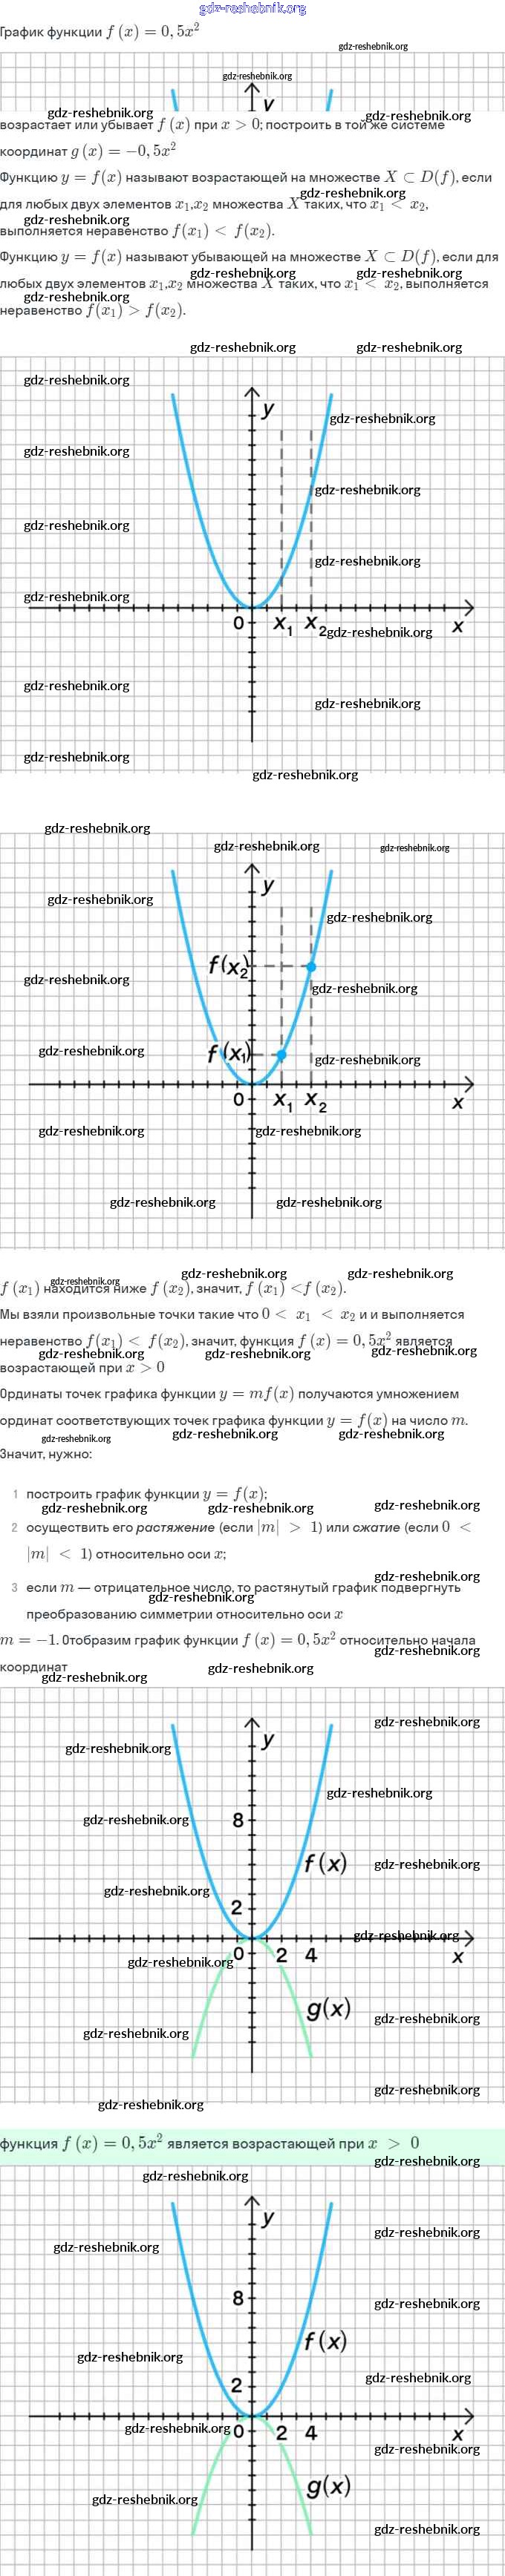 gdz-reshebnik.org
График функции f (x) = 0, 5x²
gdz-reshebnik.org
gdz-reshebnik.org
y
gdz-reshebnik.org gdz-reshebnik.org
возрастает или убывает f (x) при x > 0; построить в той же системе
координат g (x) = −0, 5x²
Функцию y = f(x) называют возрастающей на множестве X ⊂ D(f), если
gdz-reshebnik.org
для любых двух элементов x₁,x₂ множества X таких, что x₁ < x₂,
gdz-reshebnik.org
выполняется неравенство f(x₁) < f(x₂).
Функцию y = f(x) называют убывающей на множестве X ⊂ D(f), если для
gdz-reshebnik.org gdz-reshebnik.org
любых двух элементов x₁,x₂ множества X таких, что x₁ < x₂, выполняется
gdz-reshebnik.org
неравенство f(x₁) > f(x₂).
gdz-reshebnik.org gdz-reshebnik.org
gdz-reshebnik.org
y
gdz-reshebnik.org
gdz-reshebnik.org
gdz-reshebnik.org
gdz-reshebnik.org
gdz-reshebnik.org
gdz-reshebnik.org
0 x₁ x₂ x
gdz-reshebnik.org
gdz-reshebnik.org
gdz-reshebnik.org
gdz-reshebnik.org
gdz-reshebnik.org
gdz-reshebnik.org
gdz-reshebnik.org gdz-reshebnik.org
y
gdz-reshebnik.org
gdz-reshebnik.org
f(x₂)
gdz-reshebnik.org
gdz-reshebnik.org
gdz-reshebnik.org f(x₁)
gdz-reshebnik.org
0 x₁ x₂ x
gdz-reshebnik.org gdz-reshebnik.org
gdz-reshebnik.org gdz-reshebnik.org
gdz-reshebnik.org gdz-reshebnik.org
gdz-reshebnik.org
f (x₁) находится ниже f (x₂), значит, f (x₁) <f (x₂).
Мы взяли произвольные точки такие что 0 < x₁ < x₂ и и выполняется
неравенство f(x₁) < f(x₂), значит, функция f (x) = 0, 5x² является
gdz-reshebnik.org gdz-reshebnik.org gdz-reshebnik.org
возрастающей при x > 0
Ординаты точек графика функции y = mf(x) получаются умножением
ординат соответствующих точек графика функции y = f(x) на число m.
gdz-reshebnik.org gdz-reshebnik.org gdz-reshebnik.org
Значит, нужно:
1 построить график функции y = f(x);
gdz-reshebnik.org gdz-reshebnik.org gdz-reshebnik.org
2 осуществить его растяжение (если |m| > 1) или сжатие (если 0 <
|m| < 1) относительно оси x;
gdz-reshebnik.org
3 если m — отрицательное число, то растянутый график подвергнуть
gdz-reshebnik.org
преобразованию симметрии относительно оси x
m = −1. Отобразим график функции f (x) = 0, 5x² относительно начала
gdz-reshebnik.org
координат
gdz-reshebnik.org gdz-reshebnik.org
gdz-reshebnik.org
y
gdz-reshebnik.org
gdz-reshebnik.org
gdz-reshebnik.org 8
f (x) gdz-reshebnik.org
gdz-reshebnik.org
2
gdz-reshebnik.org
0 2 4 x
gdz-reshebnik.org
g(x)
gdz-reshebnik.org
gdz-reshebnik.org
gdz-reshebnik.org
gdz-reshebnik.org
функция f (x) = 0, 5x² является возрастающей при x > 0
gdz-reshebnik.org
gdz-reshebnik.org
y
gdz-reshebnik.org
gdz-reshebnik.org
8 gdz-reshebnik.org
f (x)
gdz-reshebnik.org
gdz-reshebnik.org
2
gdz-reshebnik.org 0 2 4 x
gdz-reshebnik.org
g(x)
gdz-reshebnik.org
gdz-reshebnik.org